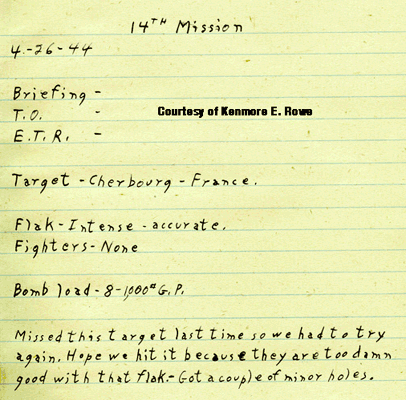 14TH Mission
4-26-44
Briefing -
T.O. -
Courtesy of Kenmore E. Rowe
E.T.R. -
Target - Cherbourg - France.
Flak - Intense - accurate.
Fighters - None
Bomb load - 8 - 1000# G.P.
Missed this target last time so we had to try
again. Hope we hit it because they are too damn
good with that flak. - Got a couple of minor holes.